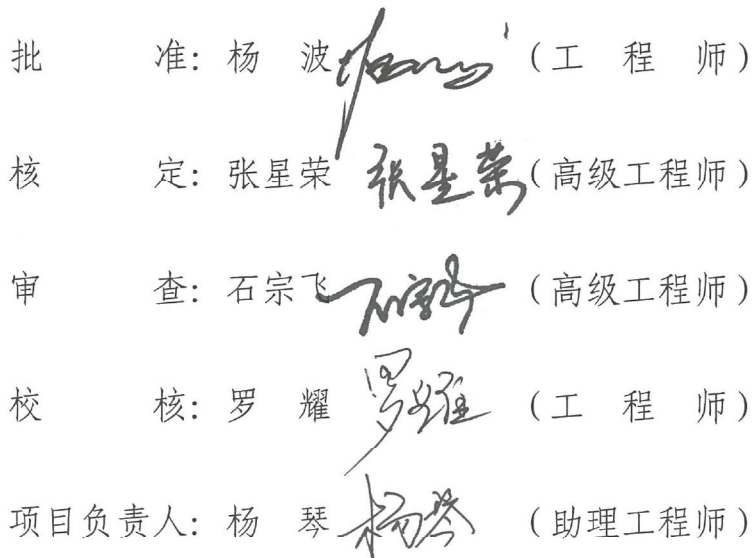 批准：杨波 （工程师）
核定：张星荣 张星荣 （高级工程师）
审查：石宗飞 石宗飞 （高级工程师）
校核：罗耀 罗耀 （工程师）
项目负责人：杨琴 杨琴 （助理工程师）